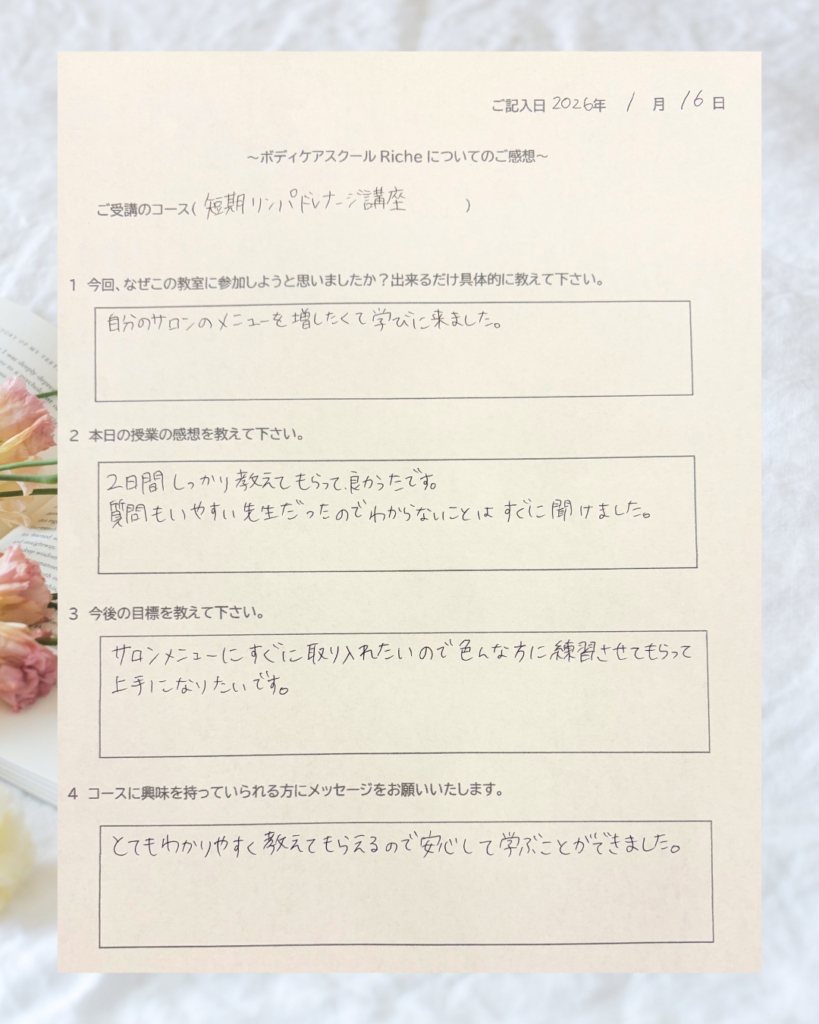 ご記入日 2026年 1月 16日
~ボディケアスクール Riche についてのご感想~
ご受講のコース( 短期リンパドレナージ講座 )
1 今回、なぜこの教室に参加しようと思いましたか?出来るだけ具体的に教えて下さい。
自分のサロンのメニューを増したくて学びに来ました。
2 本日の授業の感想を教えて下さい。
2日間しっかり教えてもらって、良かったです。
質問もいやすい先生だったのでわからないことはすぐに聞けました。
3 今後の目標を教えて下さい。
サロンメニューにすぐに取り入れたいので色んな方に練習させてもらって
上手になりたいです。
4 コースに興味を持っていられる方にメッセージをお願いいたします。
とてもわかりやすく教えてもらえるので安心して学ぶことができました。